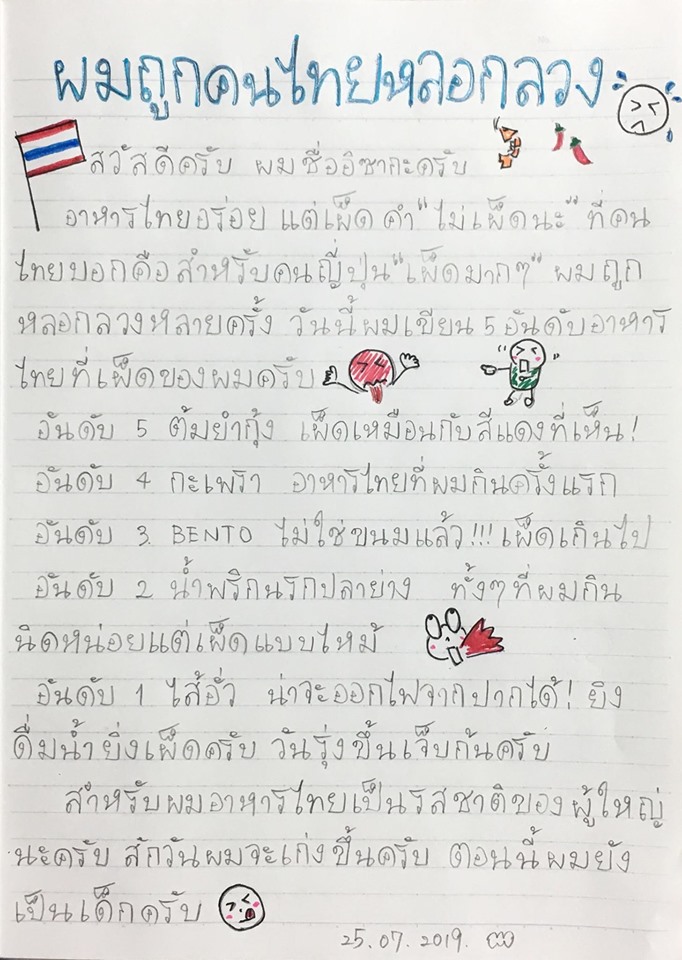 ผมถูกคนไทยหลอกลวง
สวัสดีครับ ผมชื่ออิซากะครับ
อาหารไทยอร่อย แต่เผ็ด คำ "ไม่เผ็ดนะ" ที่คน
ไทยบอกคือสำหรับคนญี่ปุ่น "เผ็ดมากๆ" ผมถูก
หลอกลวงหลายครั้ง วันนี้ผมเขียน 5 อันดับอาหาร
ไทยที่เผ็ดของผมครับ
อันดับ 5 ต้มยำกุ้ง เผ็ดเหมือนกับสีแดงที่เห็น!
อันดับ 4 กะเพรา อาหารไทยที่ผมกินครั้งแรก
อันดับ 3 BENTO ไม่ใช่ขนมแล้ว!!! เผ็ดเกินไป
อันดับ 2 น้ำพริกนรกปลาย่าง ทั้งๆที่ผมกิน
นิดหน่อยแต่เผ็ดแบบไหม้
อันดับ 1 ไส้อั่ว น่าจะออกไฟจากปากได้! ยิง
ดื่มน้ำยิ่งเผ็ดครับ วันรุ่งขึ้นเจ็บก้นครับ
สำหรับผมอาหารไทยเป็นรสชาติของผู้ใหญ่
นะครับ สักวันผมจะเก่งขึ้นครับ ตอนนี้ผมยัง
เป็นเด็กครับ
25.07.2019.